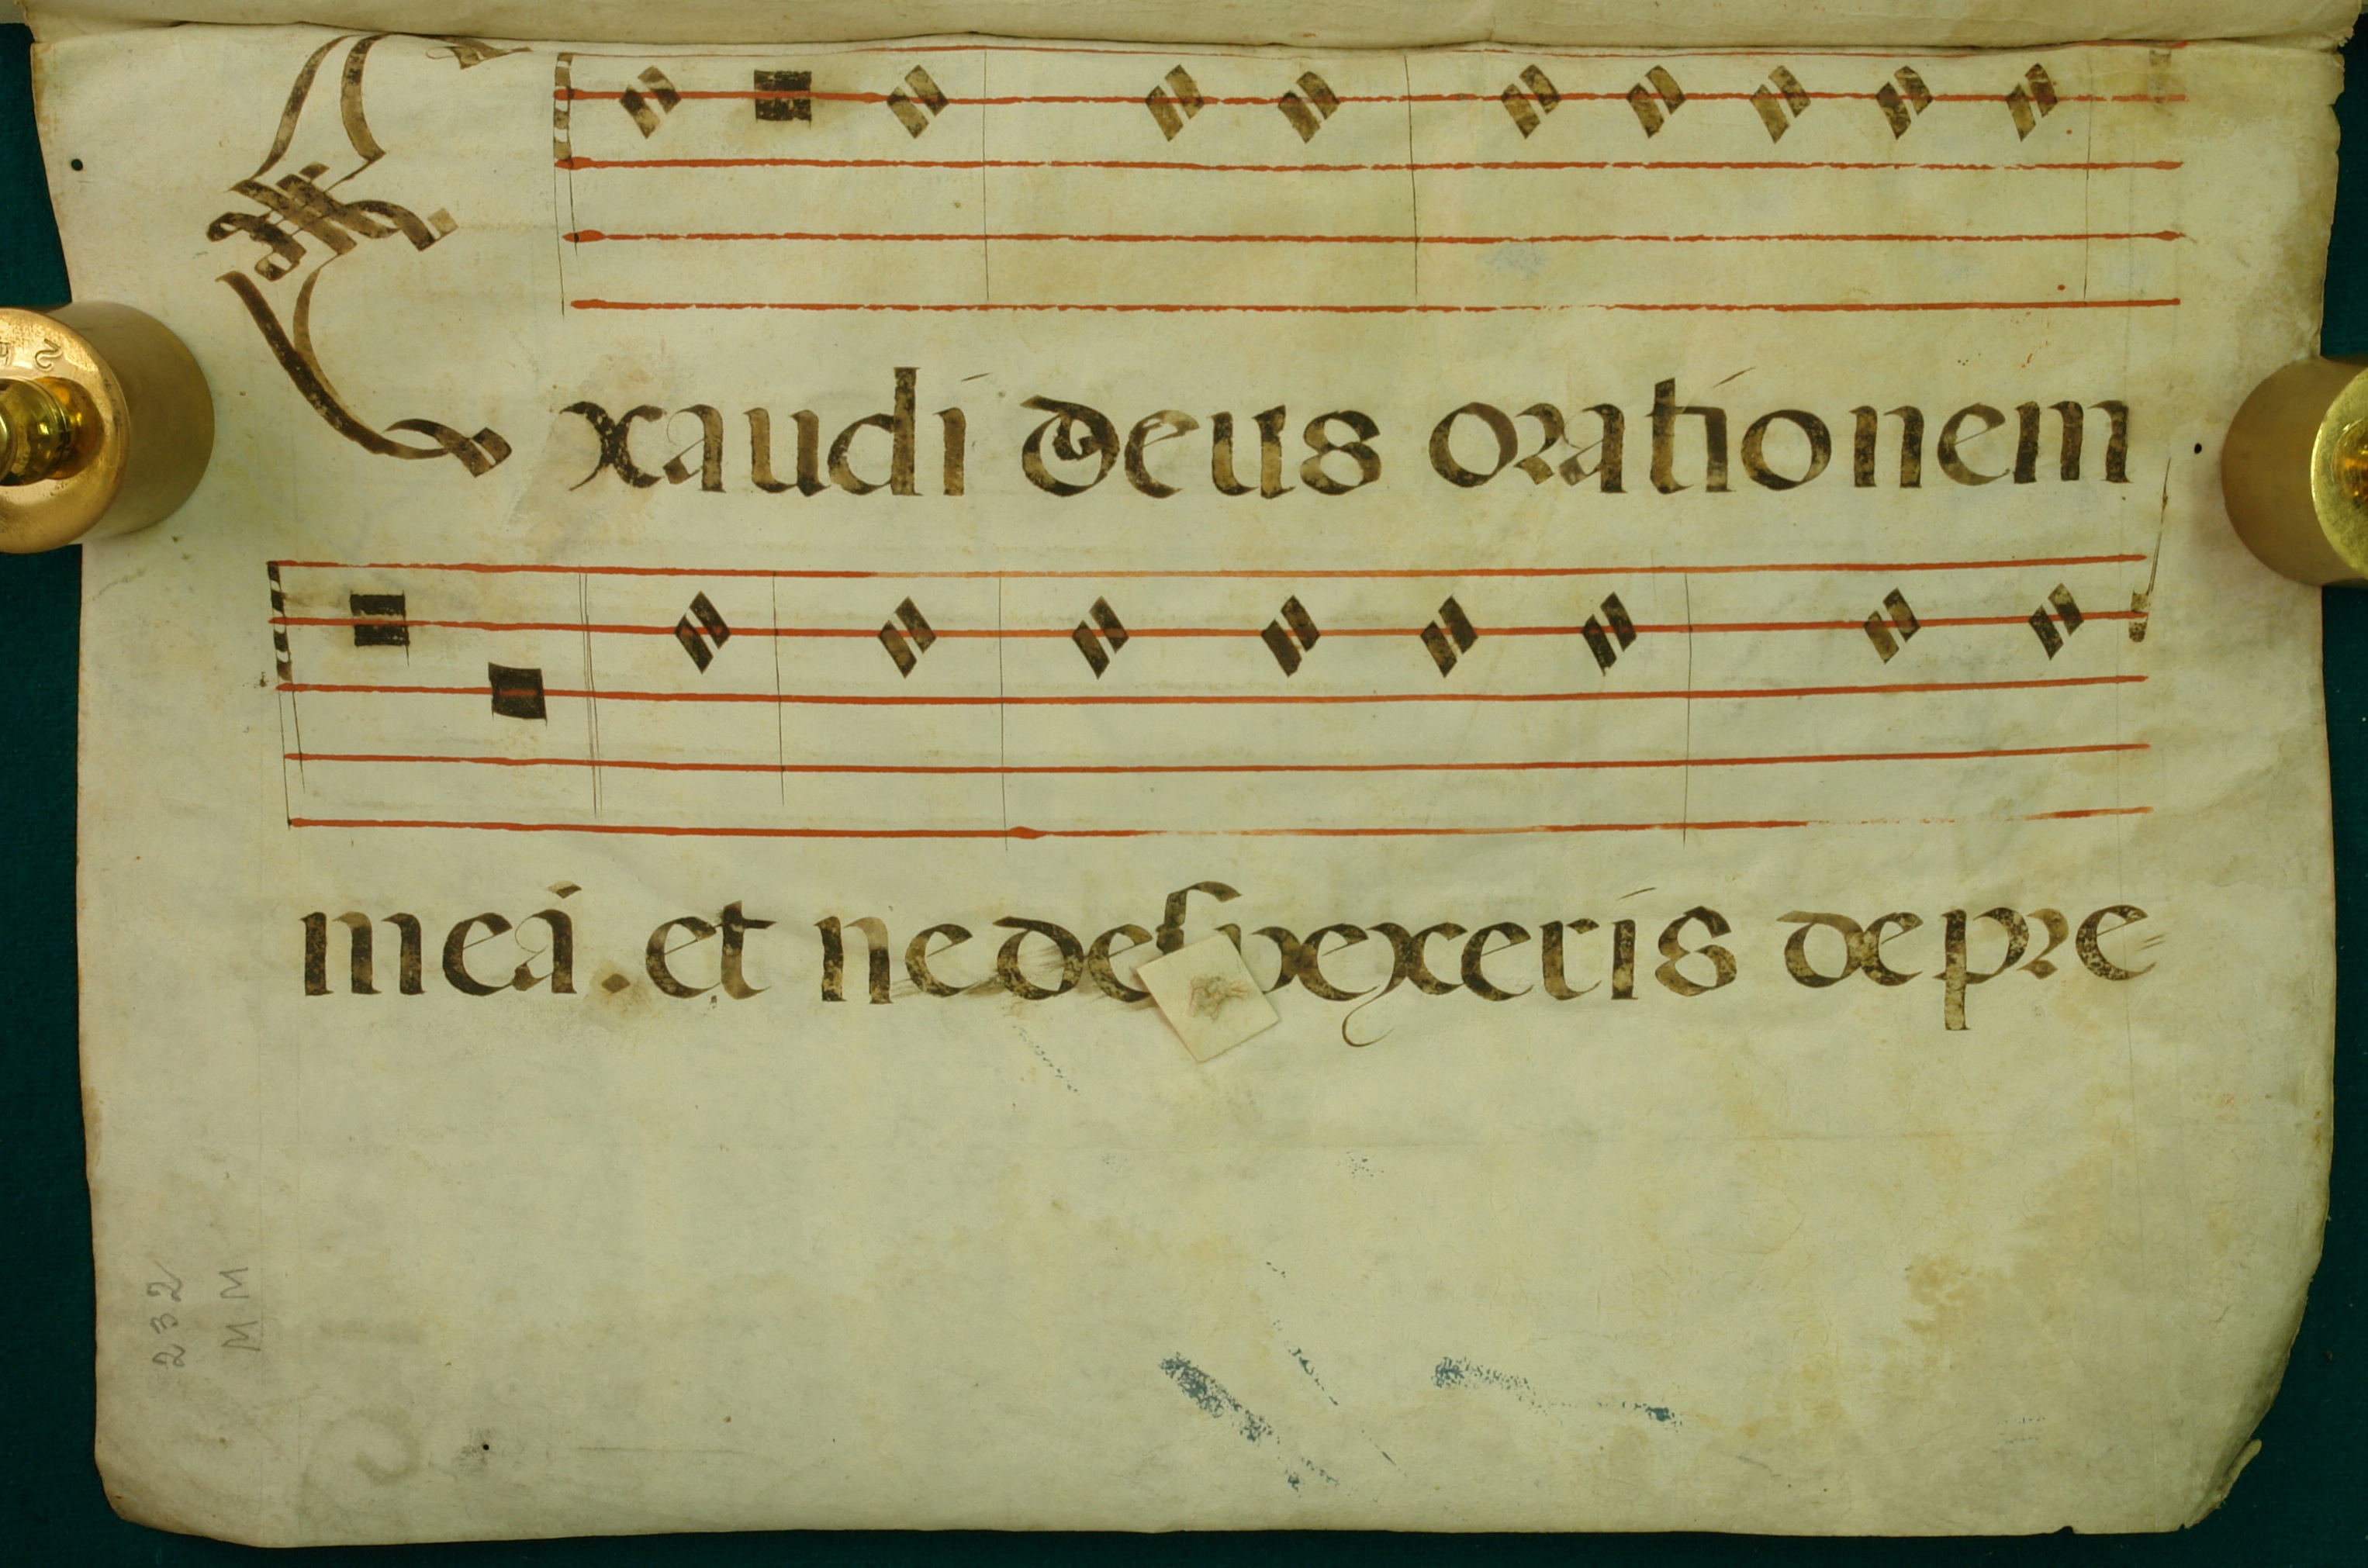 Exaudi deus orationem
meā. et ne despexeris depre
232
MM